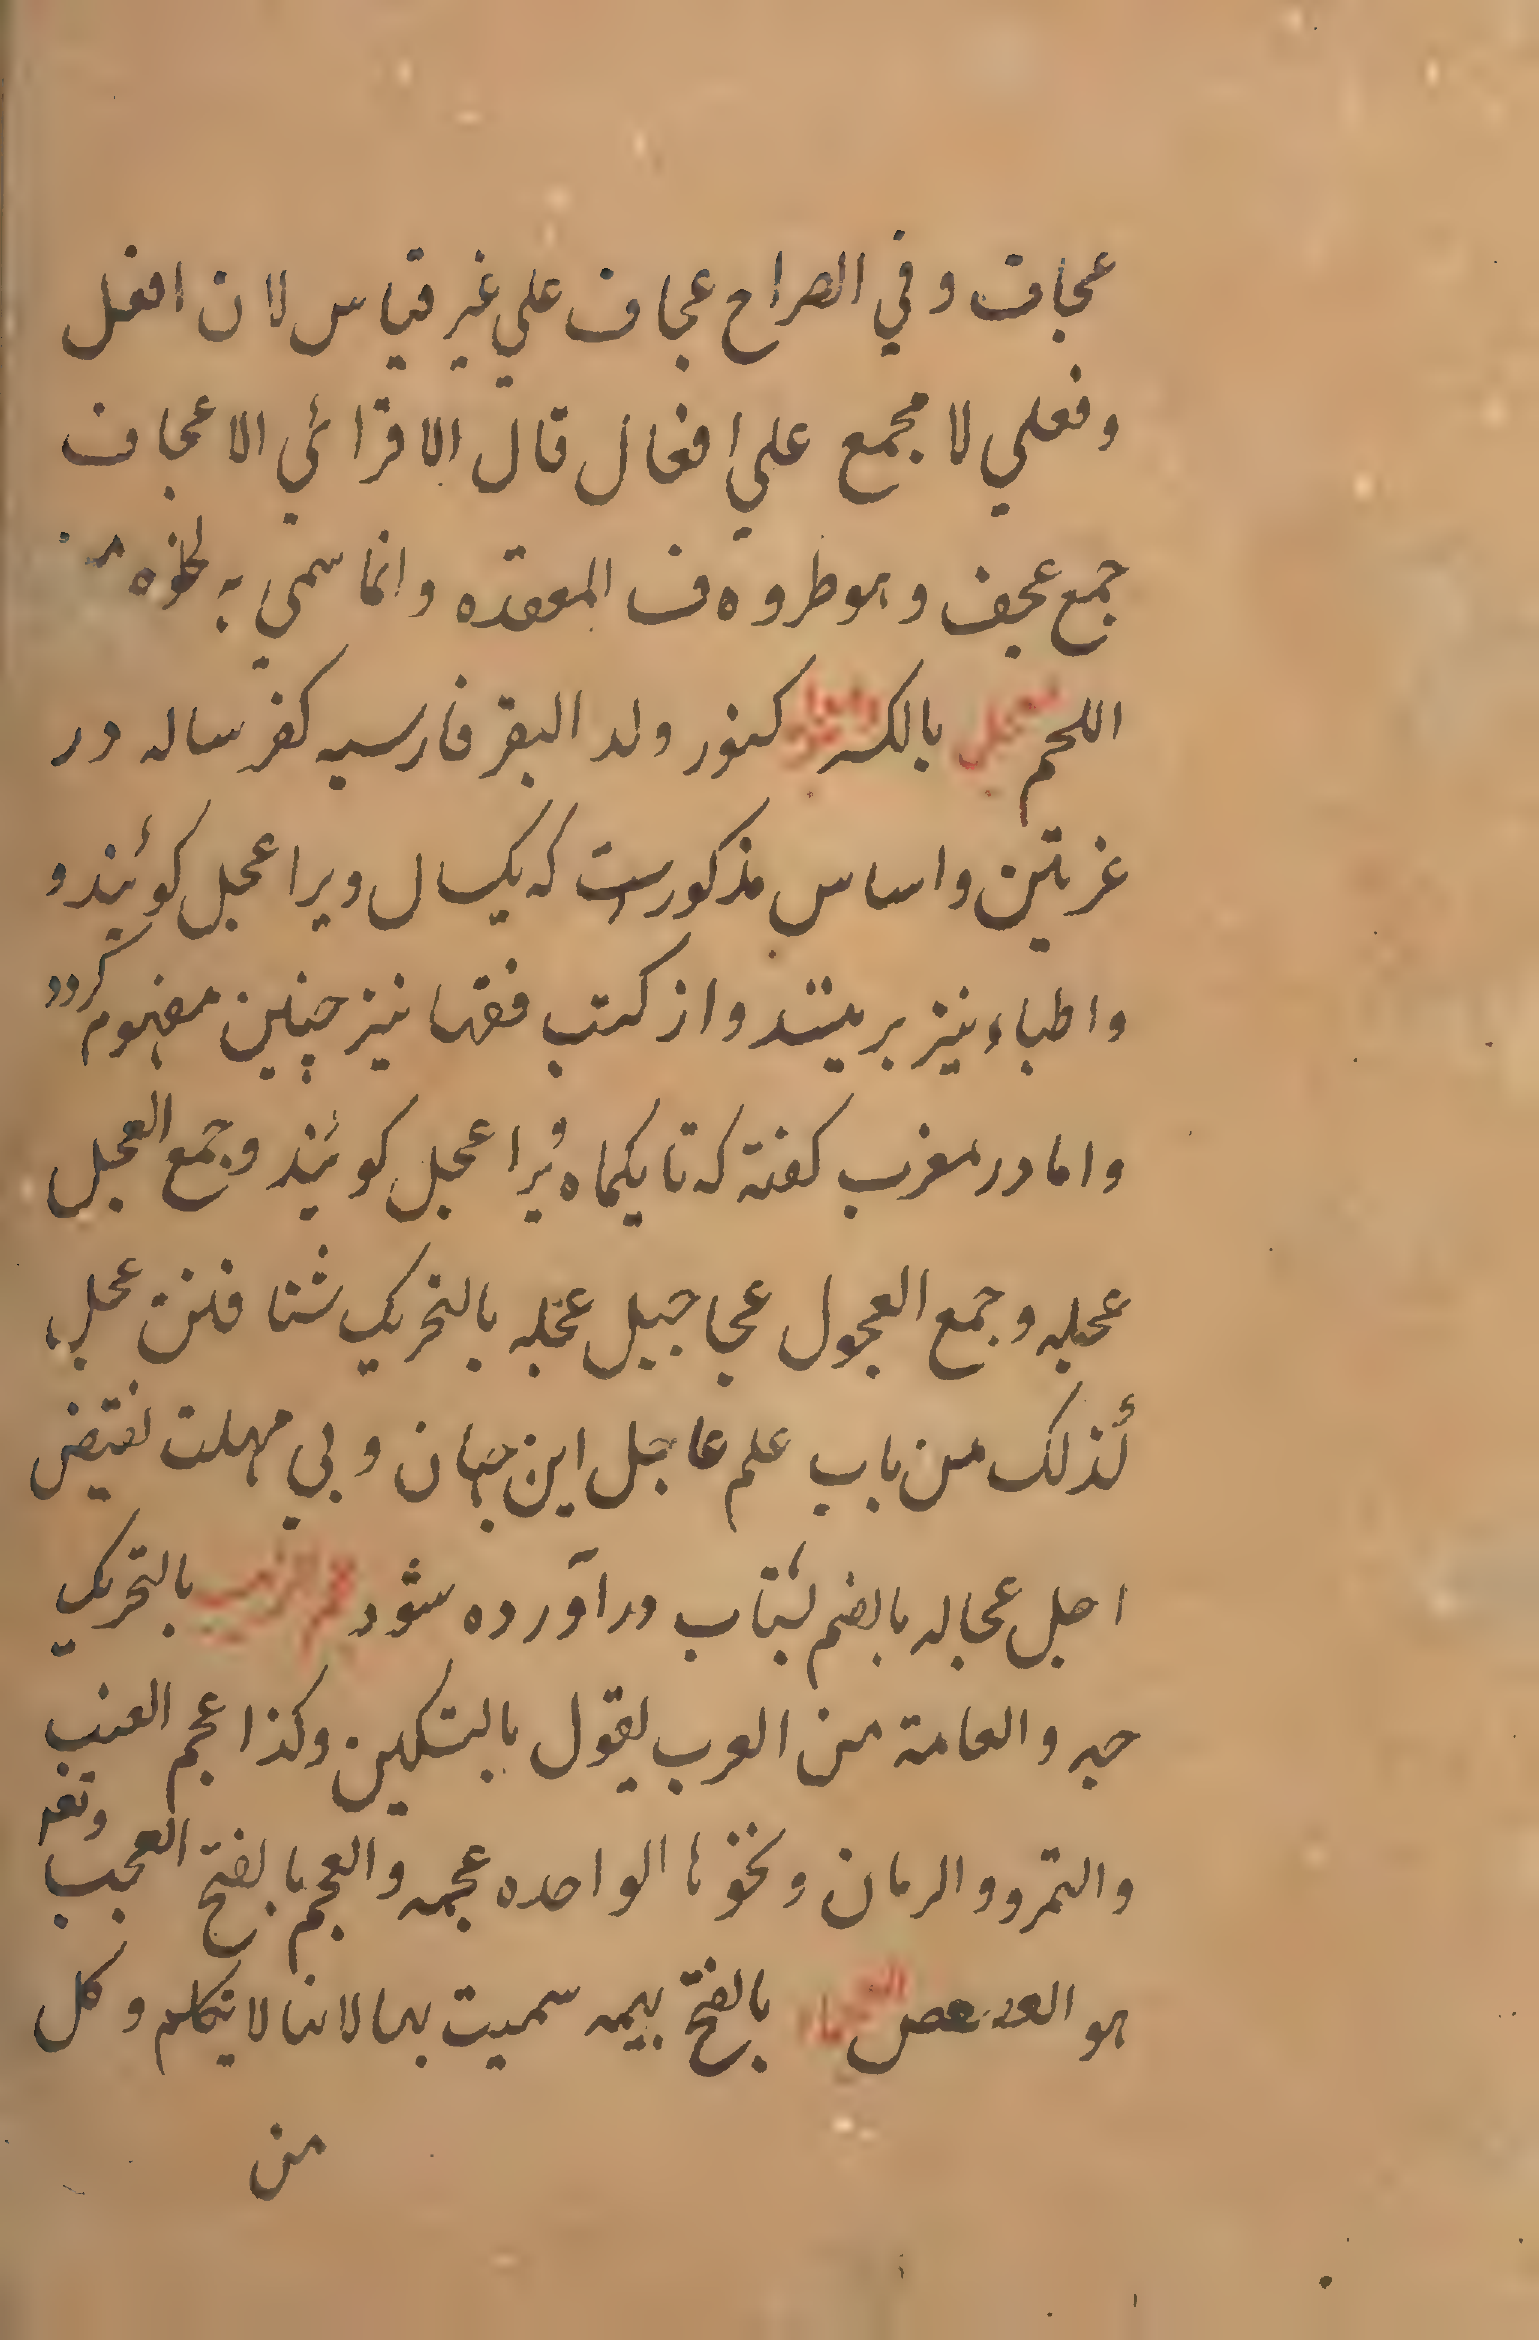 عجاف وفي الصراح عجاف علي غير قياس لان افعل
وفعلي لا يجمع علي افعال قال الاقرائي الاعجاف
جمع عجف وهو طروه ف المعقده وانما سمي به لخلوه من
اللحم عجل بالكسر كنور ولد البقر فارسيه كفر ساله در
غربتين واساس مذكورست كه يكسال ويرا عجل كوئيند و
واطباء نيز برينند واز كتب فقها نيز چنين مفهوم كردد
واما در مغرب كفته كه تا يكماه ويرا عجل كوئيند وجمع العجل
عجله وجمع العجول عجاجيل عجله بالتحريك شتافتن عجل
لذلك من باب علم عاجل اين جهان و بي مهلت نقيض
اجل عجاله بالضم بشتاب درآورده شود بالتحريك
حبه والعامة من العرب يقول بالتسكين وكذا عجم العنب
والتمر و والرمان ونحوها الواحده عجمه والعجم بالفتح العجب
هو العصعص العجماء بالفتح بهيمه سميت بها لانها لا يتكلم وكل
من